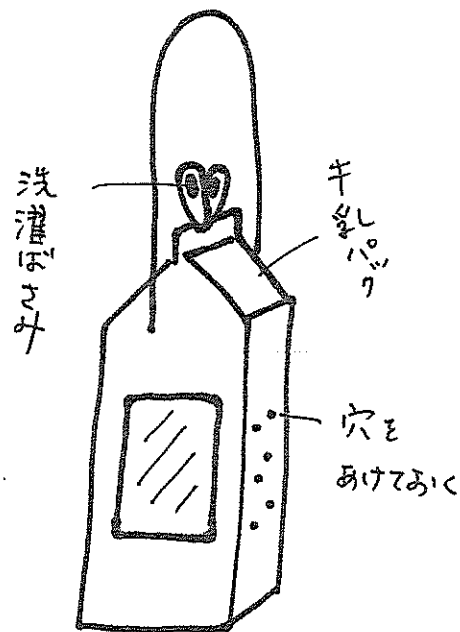 洗濯ばさみ
牛乳パック
穴を
あけておく